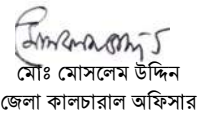 মোঃ মোসলেম উদ্দিন
জেলা কালচারাল অফিসার